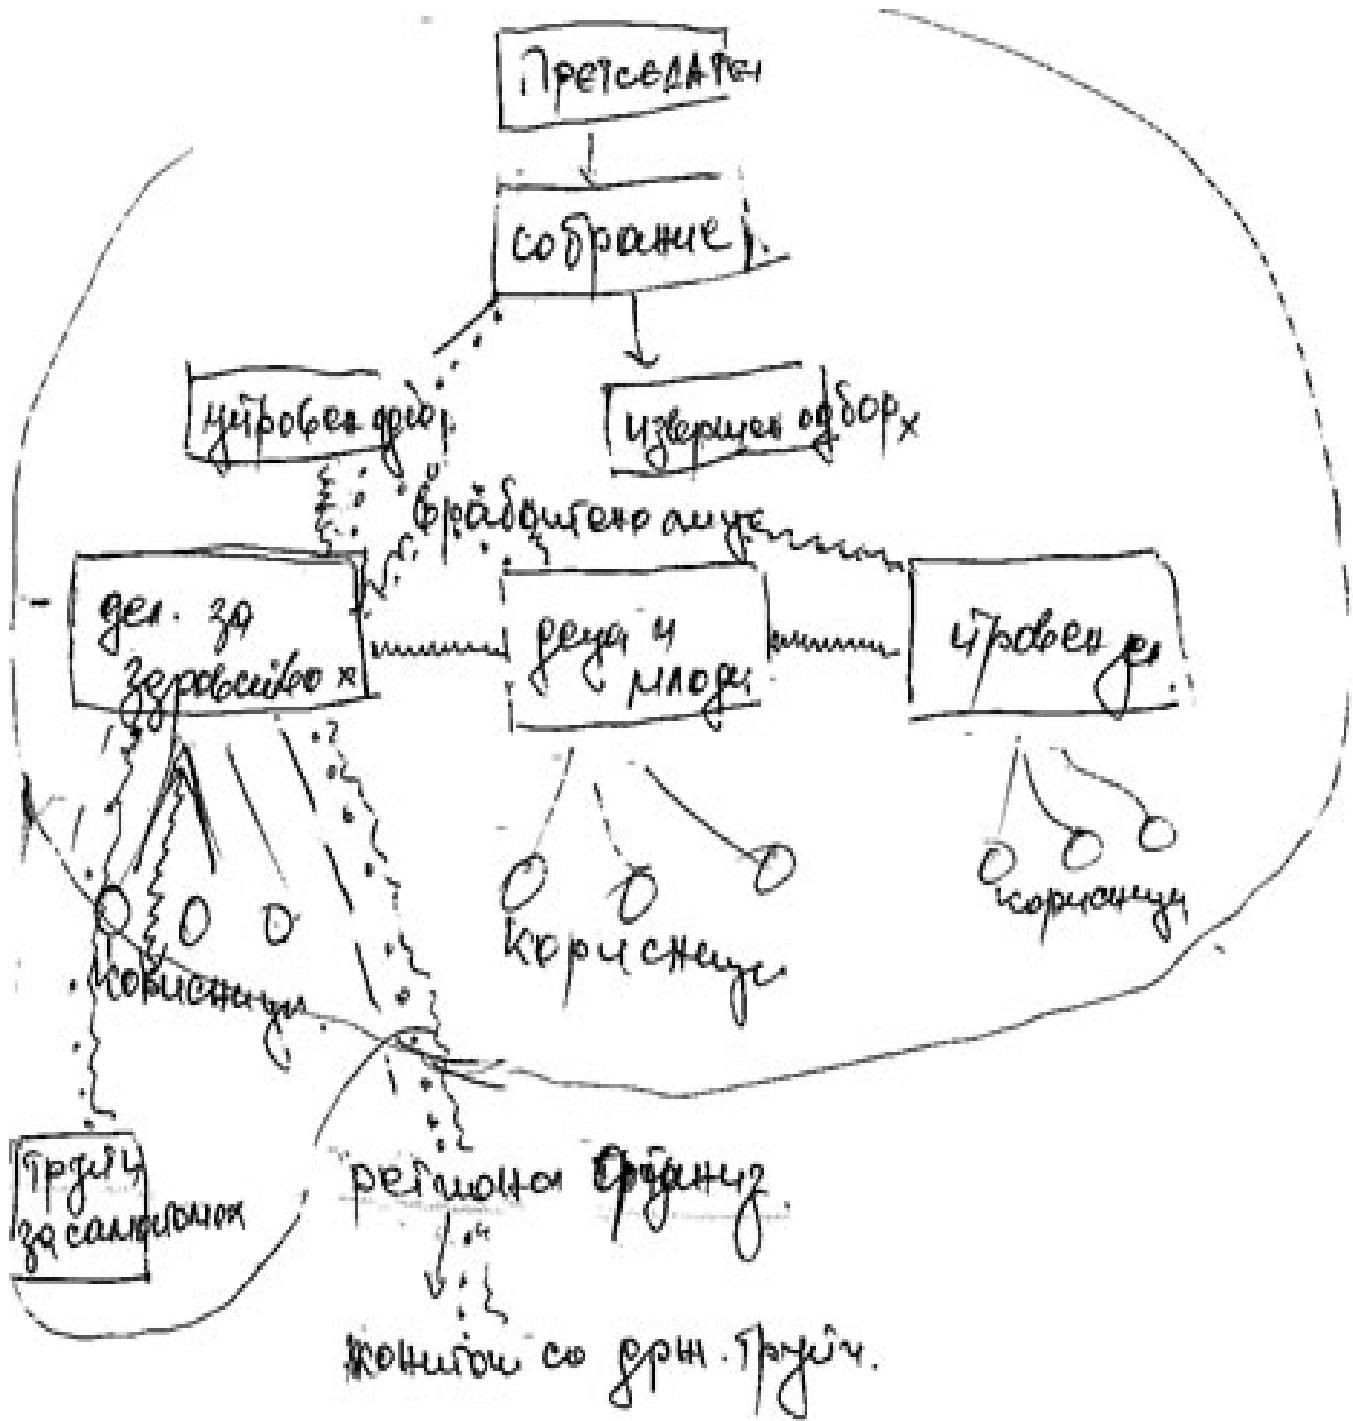 Претседател
собрание
управен одбор
извершен одбор
вработено лице
дел. за
здравство
деца и
млади
управен де.
корисници
корисници
корисници
групи
за самопомош
региона организ.
контакт со држ. групи.